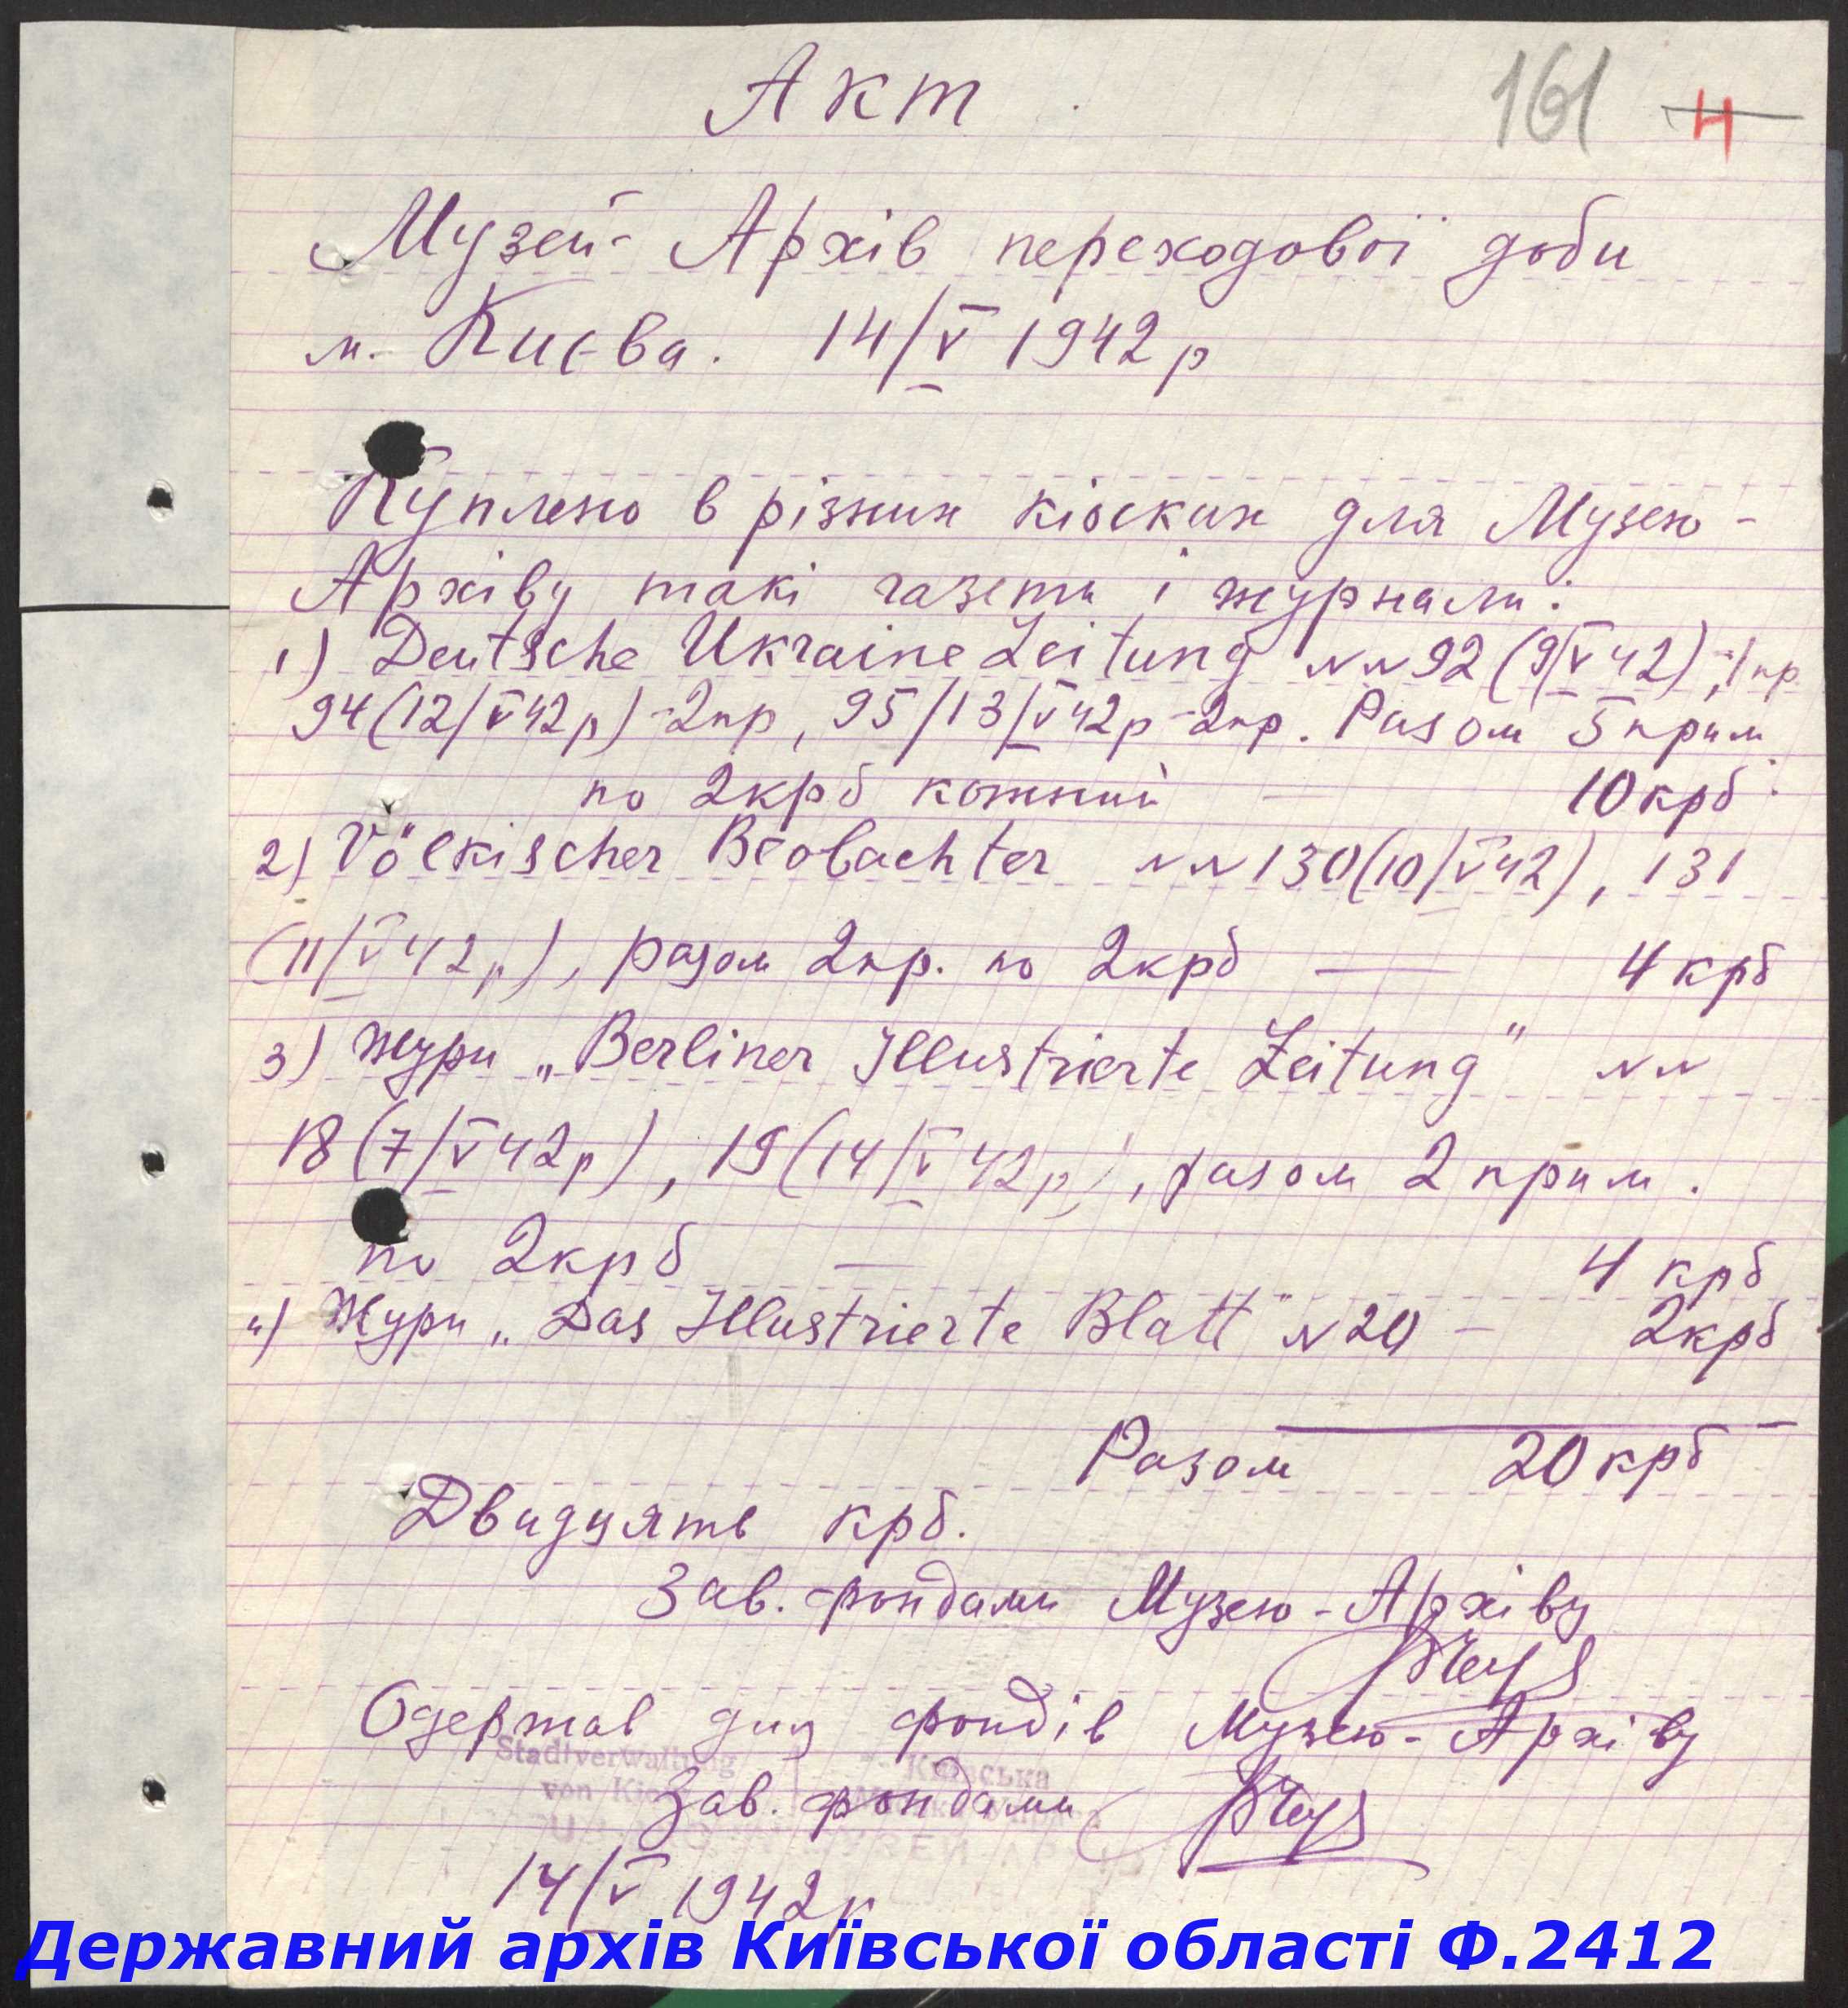 Акт
161 4
Музей-Архів переходової доби
м. Києва. 14/V 1942 р
Куплено в різних кіосках для Музею-
Архіву такі газети і журнали:
1) Deutsche Ukraine Zeitung №№ 92 (9/V 42), -1 пр
94 (12/V 42 р) - 2 пр, 95 /13/V 42 р - 2 пр. Разом 5 прим.
по 2 крб кожний — 10 крб.
2) Völkischer Beobachter №№ 130 (10/V 42), 131
(11/V 42 р), разом 2 пр. по 2 крб — 4 крб
3) Журн „Berliner Illustrierte Zeitung" №№
18 (7/V 42 р), 19 (14/V 42 р), разом 2 прим.
по 2 крб — 4 крб
4) Журн „Das Illustrierte Blatt" № 20 — 2 крб
Разом 20 крб
Двадцять крб.
Зав. фондами Музею-Архіву
Одержав для фондів Музею-Архіву
Stadtverwaltung Київська
von Kiew
Зав. фондами
14/V 1942 р
Державний архів Київської області Ф.2412